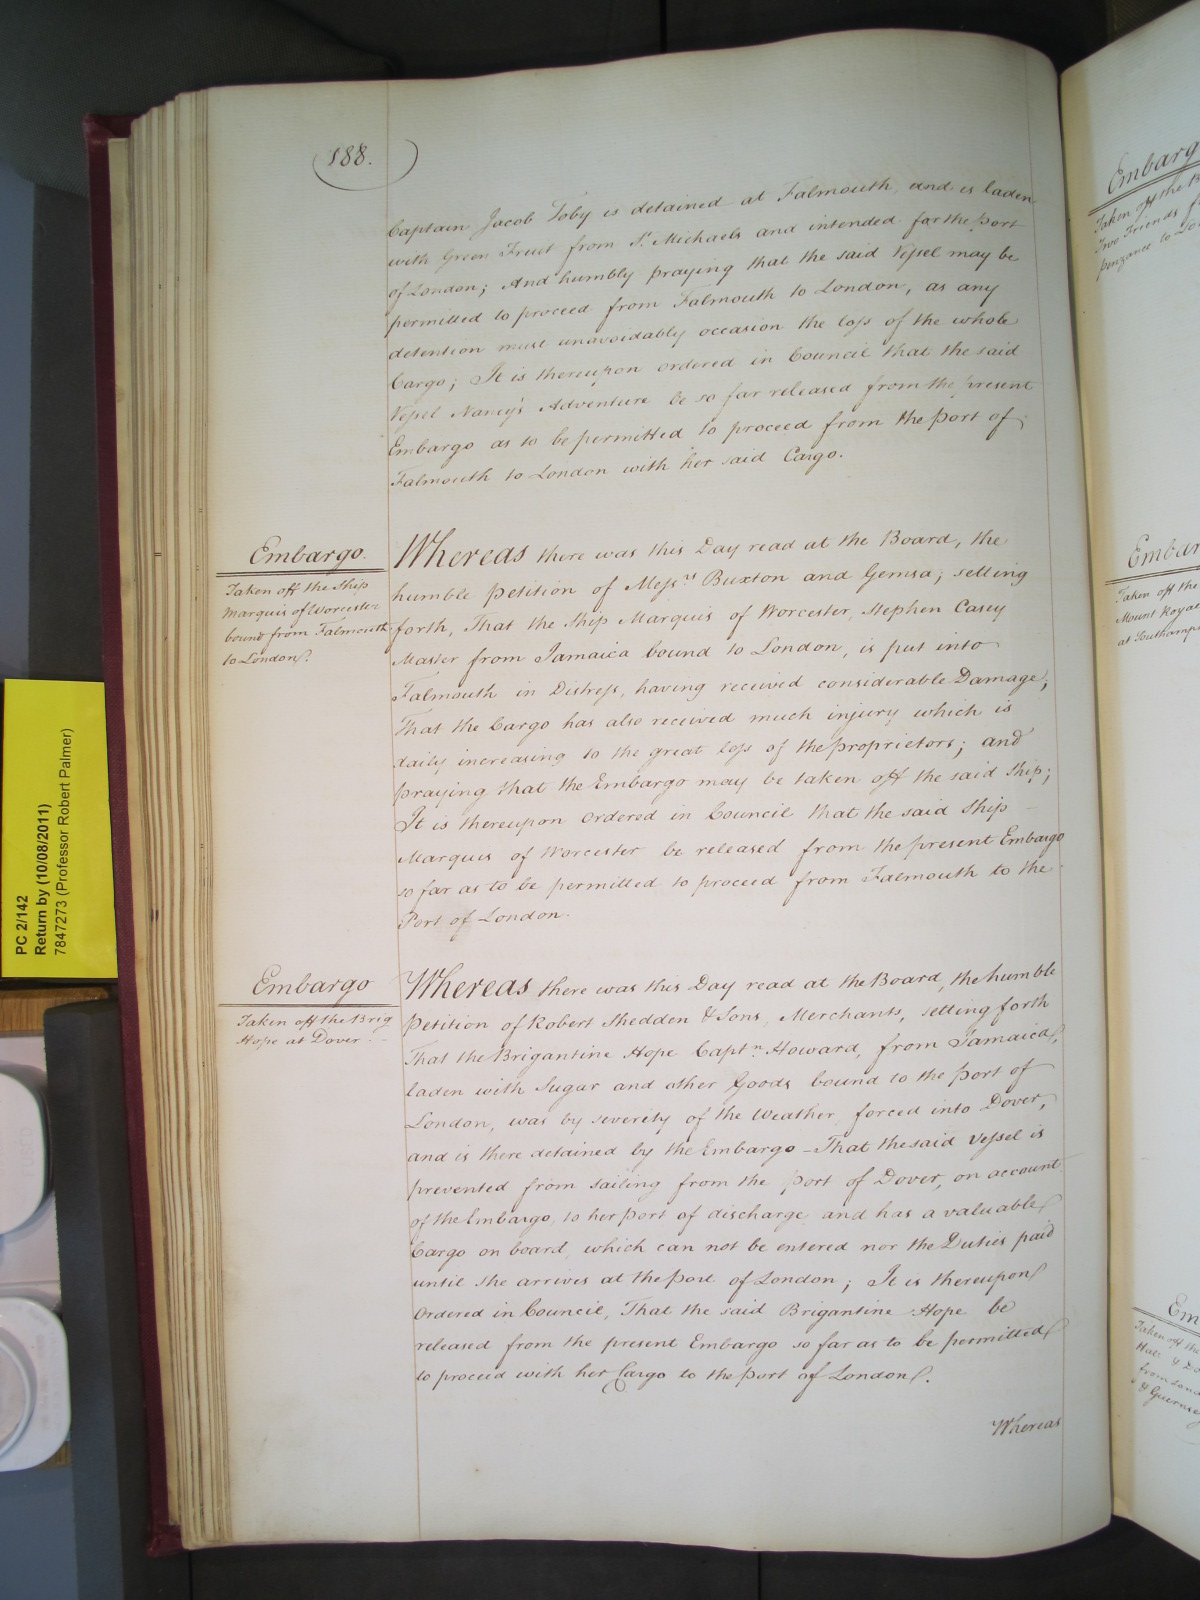 188.
Captain Jacob Toby is detained at Falmouth, and is laden
with Green Fruit from St. Michaels and intended for the Port
of London; And humbly praying that the said Vessel may be
permitted to proceed from Falmouth to London, as any
detention must unavoidably occasion the loss of the whole
Cargo; It is thereupon ordered in Council that the said
Vessel Nancy's Adventure be so far released from the present
Embargo as to be permitted to proceed from the Port of
Falmouth to London with her said Cargo.
Embargo.
Taken off the Ship
Marquis of Worcester
bound from Falmouth
to London.
Whereas there was this Day read at the Board, the
humble Petition of Messrs Buxton and Gemsa; setting
forth, That the Ship Marquis of Worcester, Stephen Casey
Master from Jamaica bound to London, is put into
Falmouth in Distress, having received considerable Damage;
That the Cargo has also received much injury which is
daily increasing to the great loss of the proprietors; and
praying that the Embargo may be taken off the said Ship;
It is thereupon Ordered in Council that the said Ship
Marquis of Worcester be released from the present Embargo
so far as to be permitted to proceed from Falmouth to the
Port of London.
Embargo
Taken off the Brig
Hope at Dover
Whereas there was this Day read at the Board, the humble
Petition of Robert Shedden & Sons, Merchants, setting forth
That the Brigantine Hope Captn. Howard, from Jamaica,
laden with Sugar and other Goods bound to the Port of
London, was by severity of the Weather forced into Dover,
and is there detained by the Embargo - That the said Vessel is
prevented from sailing from the Port of Dover, on account
of the Embargo, to her Port of discharge and has a valuable
Cargo on board, which can not be entered nor the Duties paid
until she arrives at the Port of London; It is thereupon
Ordered in Council, That the said Brigantine Hope be
released from the present Embargo so far as to be permitted
to proceed with her Cargo to the Port of London.
Whereas
PC 2/142
Return by (10/08/2011)
7847273 (Professor Robert Palmer)
Embarg
Taken off the B
Two Friends f
penzance to Lo
Embar
Taken off the
Mount Royal
at Southamp
Em
Taken off the
from Lon
& Guernse